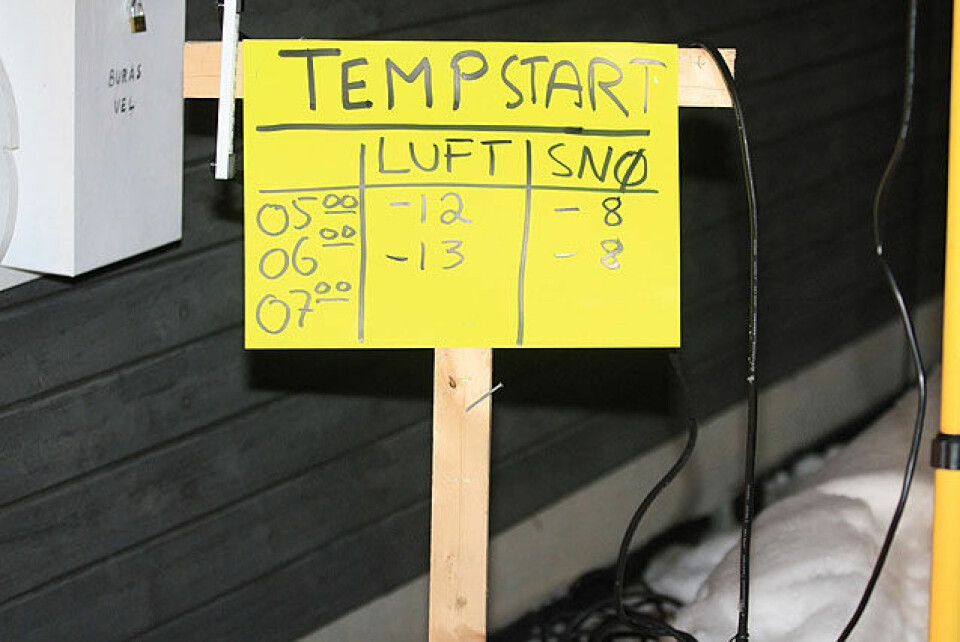 BURÅS
VEL
TEMP START
LUFT SNØ
05⁰⁰ -12 -8
06⁰⁰ -13 -8
07⁰⁰